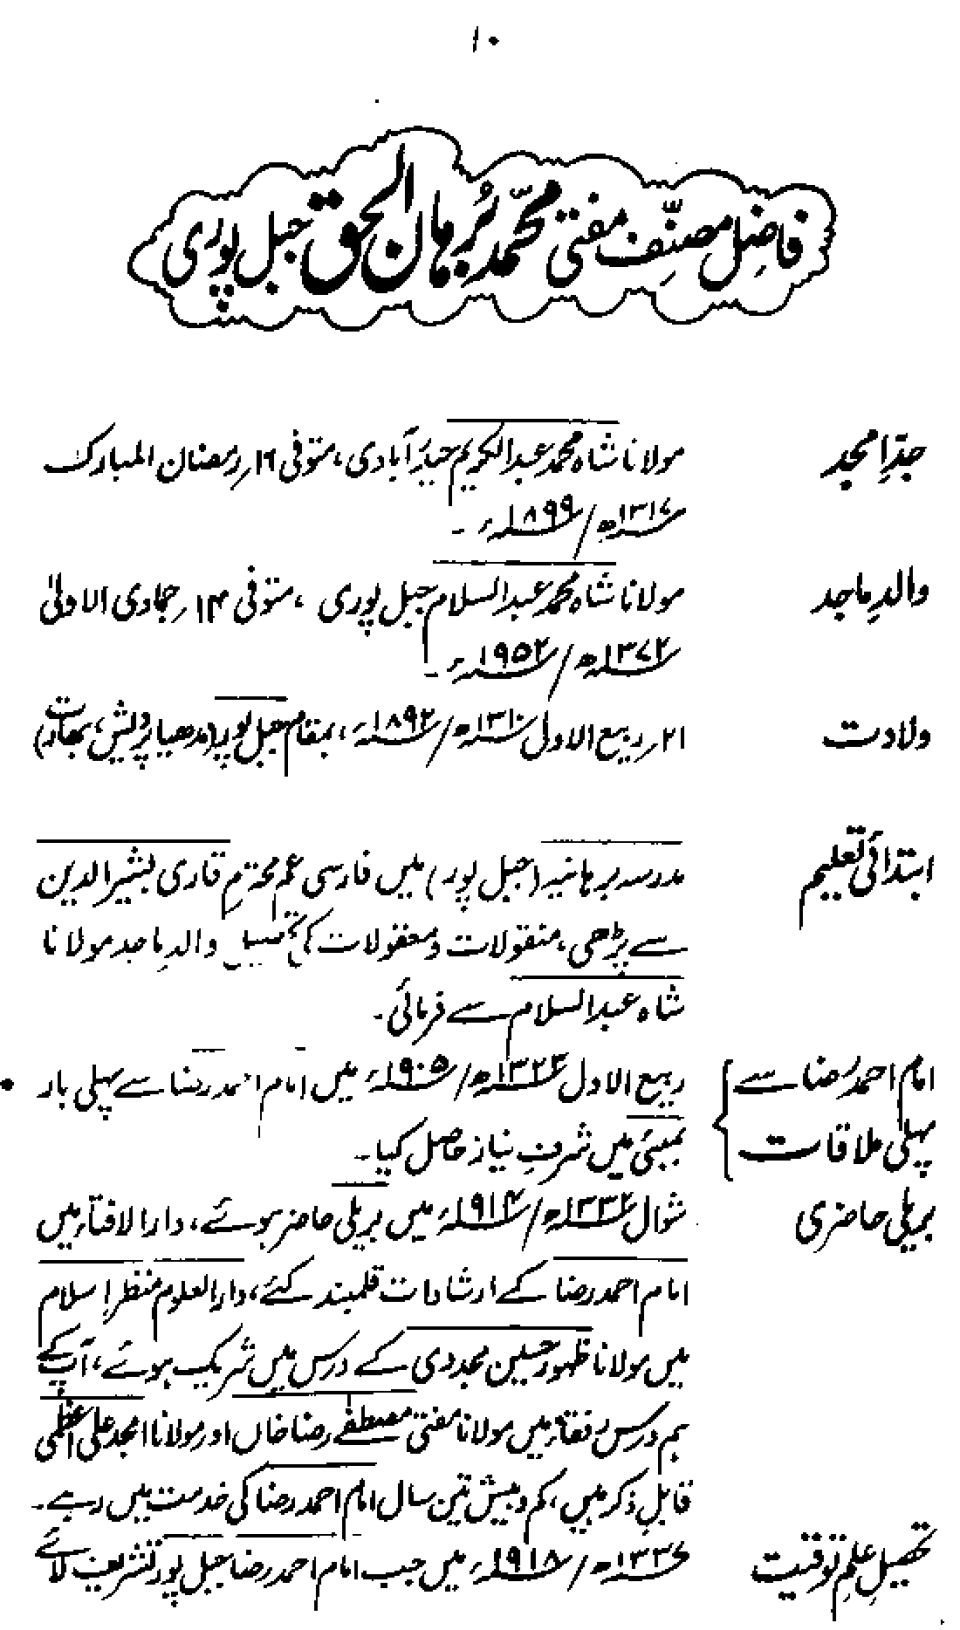 ۱۰
فاضل مصنّف مفتی محمّد بُرہان الحق جبل پوری
جدِّ امجد مولانا شاہ محمد عبدالکریم حیدرآبادی، متوفی ۱۶؍رمضان المبارک
۱۳۱۷ھ/۱۸۹۹ء۔
والدِ ماجد مولانا شاہ محمد عبدالسلام جبل پوری ، متوفی ۱۴؍جمادی الاولیٰ
۱۳۷۲ھ/۱۹۵۲ء۔
ولادت ۲۱؍ربیع الاول ۱۳۱۰ھ/۱۸۹۲ء، بمقام جبل پور (مدھیا پردیش، بھارت)
ابتدائی تعلیم مدرسہ برہانیہ (جبل پور) میں فارسی عم محترم قاری بشیر الدین
سے پڑھی، منقولات و معقولات کی تکمیل والدِ ماجد مولانا
شاہ عبدالسلام سے فرمائی۔
امام احمد رضا سے ربیع الاول ۱۳۲۳ھ/۱۹۰۵ء میں امام احمد رضا سے پہلی بار
پہلی ملاقات بمبئی میں شرفِ نیاز حاصل کیا۔
بریلی حاضری شوال ۱۳۳۲ھ/۱۹۱۴ء میں بریلی حاضر ہوئے، دارالافتاء میں
امام احمد رضا کے ارشادات قلمبند کئے، دارالعلوم منظرِ اسلام
میں مولانا ظہور حسین مجددی کے درس میں شریک ہوئے، آپ کے
ہم درس رفقاء میں مولانا مفتی مصطفےٰ رضا خاں اور مولانا امجد علی اعظمی
قابلِ ذکر ہیں، کم و بیش تین سال امام احمد رضا کی خدمت میں رہے۔
تحصیلِ علمِ توقیت ۱۳۳۷ھ/۱۹۱۸ء میں جب امام احمد رضا جبل پور تشریف لائے